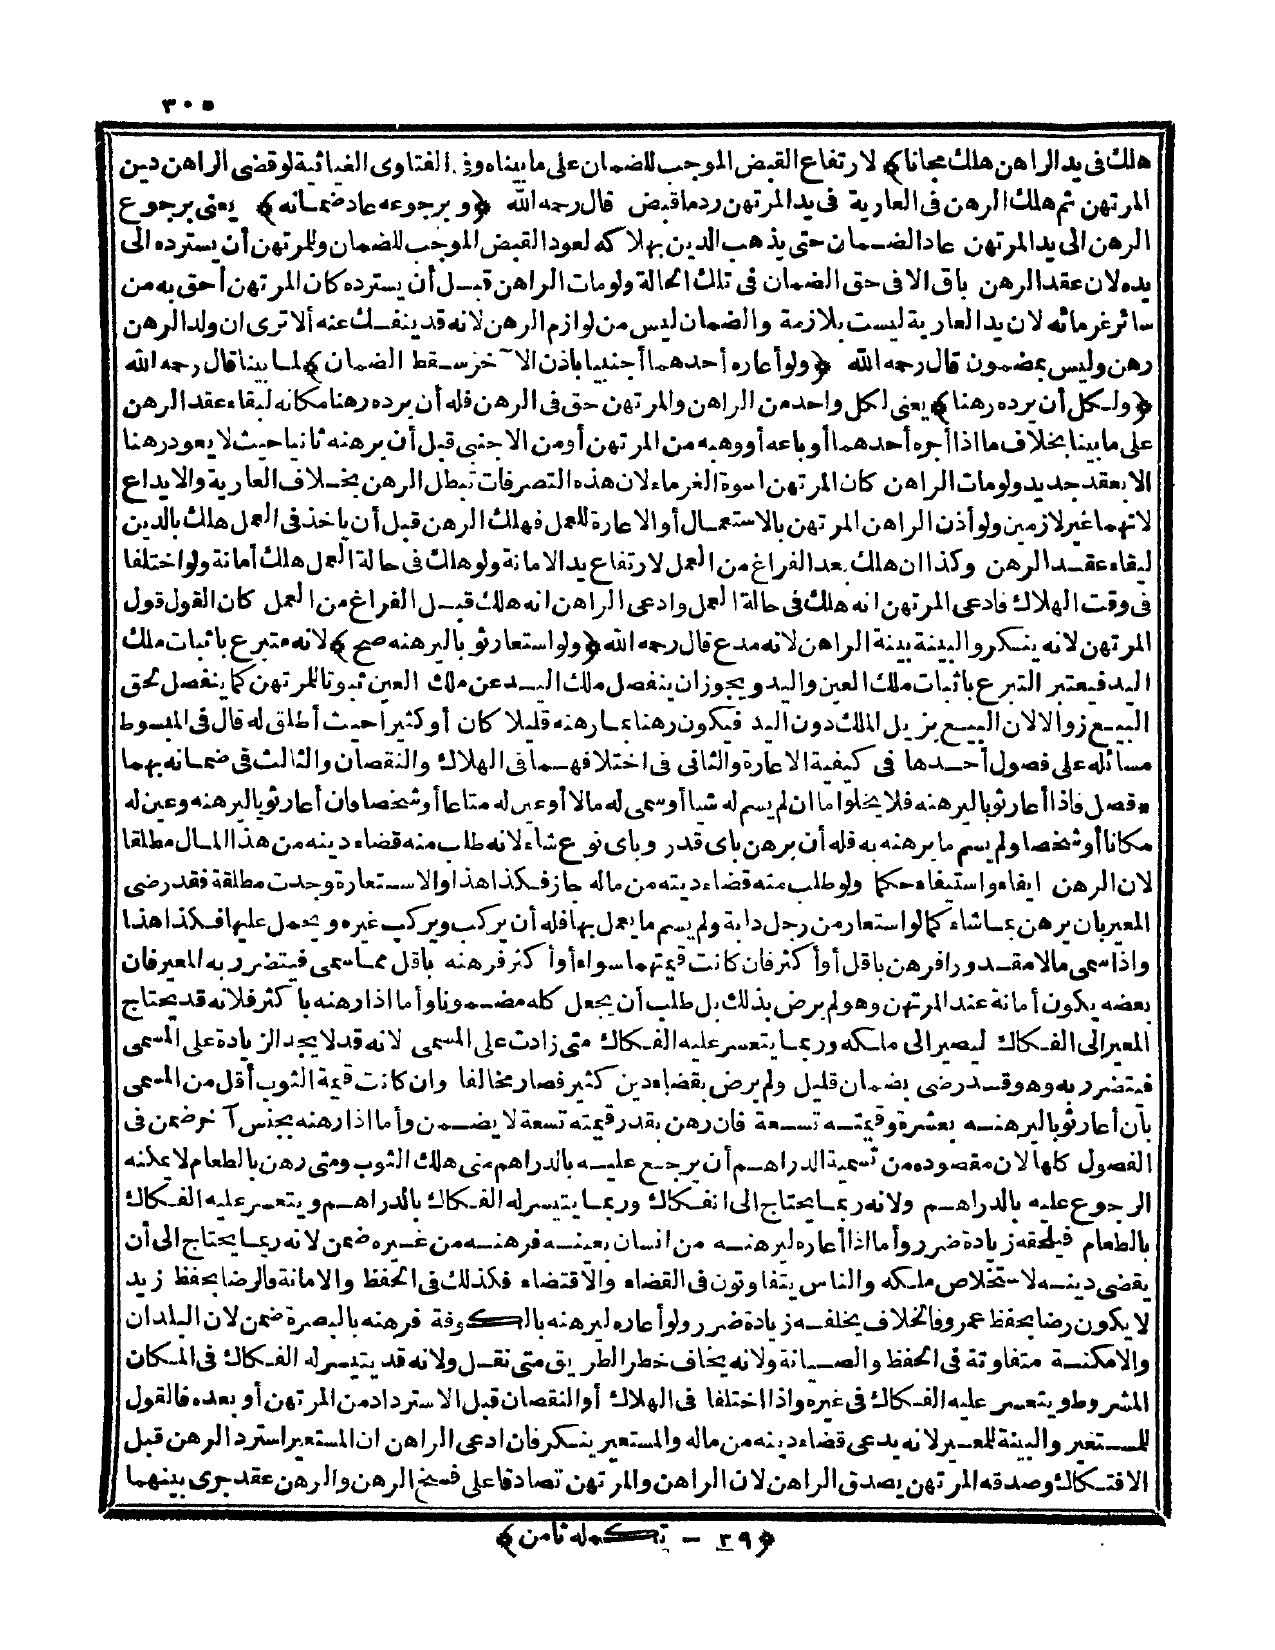 ٣٠٥
هلك في يد الراهن هلك مجانا﴾ لارتفاع القبض الموجب للضمان على ما بيناه وفي الفتاوى الغياثية لو قضى الراهن دين
المرتهن ثم هلك الرهن في العارية في يد المرتهن رد ما قبض قال رحمه الله ﴿وبرجوعه عاد ضمانه﴾ يعني برجوع
الرهن الى يد المرتهن عاد الضمان حتى يذهب الدين بهلاكه لعود القبض الموجب للضمان وللمرتهن أن يسترده الى
يده لان عقد الرهن باق الا في حق الضمان في تلك الحالة ولو مات الراهن قبل أن يسترده كان المرتهن أحق به من
سائر غرمائه لان يد العارية ليست بلازمة والضمان ليس من لوازم الرهن لانه قد ينفك عنه ألا ترى ان ولد الرهن
رهن وليس بمضمون قال رحمه الله ﴿ولو أعاره أحدهما أجنبيا باذن الآخر سقط الضمان﴾ لما بينا قال رحمه الله
﴿ولكل أن يرده رهنا﴾ يعني لكل واحد من الراهن والمرتهن حق في الرهن فله أن يرده رهنا مكانه لبقاء عقد الرهن
على ما بينا بخلاف ما اذا أجره أحدهما أو باعه أو وهبه من المرتهن أو من الاجنبي قبل أن يرهنه ثانيا حيث لا يعود رهنا
الا بعقد جديد ولو مات الراهن كان المرتهن اسوة الغرماء لان هذه التصرفات تبطل الرهن بخلاف العارية والايداع
لانهما غير لازمين ولو أذن الراهن المرتهن بالاستعمال أو الاعارة للعمل فهلك الرهن قبل أن ياخذ في العمل هلك بالدين
لبقاء عقد الرهن وكذا ان هلك بعد الفراغ من العمل لارتفاع يد الامانة ولو هلك في حالة العمل هلك أمانة ولو اختلفا
في وقت الهلاك فادعى المرتهن انه هلك في حالة العمل وادعى الراهن انه هلك قبل الفراغ من العمل كان القول قول
المرتهن لانه ينكر والبينة بينة الراهن لانه مدع قال رحمه الله ﴿ولو استعار ثوبا ليرهنه صح﴾ لانه متبرع باثبات ملك
اليد فيعتبر التبرع باثبات ملك العين واليد ويجوز ان ينفصل ملك اليد عن ملك العين ثبوتا للمرتهن كما ينفصل لحق
البيع زوالا لان البيع يزيل الملك دون اليد فيكون رهنا عار هنه قليلا كان أو كثيرا حيث أطلق له قال في المبسوط
مسائله على فصول أحدها في كيفية الاعارة والثاني في اختلافهما في الهلاك والنقصان والثالث في ضمانه بهما
* فصل فاذا أعار ثوبا ليرهنه فلا يخلوا ما ان لم يسم له شيا أو سمى له مالا أو عين له متاعا أو شخصا وان أعار ثوبا ليرهنه وعين له
مكانا أو شخصا ولم يسم ما يرهنه به فله أن يرهن باى قدر وباى نوع شاء لانه طلب منه قضاء دينه من هذا المال مطلقا
لان الرهن ايفاء واستيفاء حكما ولو طلب منه قضاء دينه من ماله جاز فكذا هذا والاستعارة وجدت مطلقة فقد رضى
المعير بان يرهن بما شاء كما لو استعار من رجل دابة ولم يسم ما يعمل بها فله أن يركب ويركب غيره ويحمل عليها فكذا هذا
واذا سمى مالا مقدورا فرهن باقل أو أكثر فان كانت قيمتهما سواء أو أكثر فرهنه باقل مما سمى فيتضرر به المعير فان
بعضه يكون أمانة عند المرتهن وهو لم يرض بذلك بل طلب أن يجعل كله مضمونا وأما اذا رهنه باكثر فلانه قد يحتاج
المعير الى الفكاك ليصير الى ملكه وربما يتعسر عليه الفكاك متى زادت على المسمى لانه قد لا يجد الزيادة على المسمى
فيتضرر به وهو قد رضى بضمان قليل ولم يرض بقضاء دين كثير فصار مخالفا وان كانت قيمة الثوب أقل من المسمى
بأن أعار ثوبا ليرهنه بعشرة وقيمته تسعة فان رهن بقدر قيمته تسعة لا يضمن وأما اذا رهنه بجنس آخر ضمن في
الفصول كلها لان مقصوده من تسمية الدراهم أن يرجع عليه بالدراهم متى هلك الثوب ومتى رهن بالطعام لا يمكنه
الرجوع عليه بالدراهم ولانه ربما يحتاج الى انفكاك وربما يتيسر له الفكاك بالدراهم ويتعسر عليه الفكاك
بالطعام فيلحقه زيادة ضرر وأما اذا أعاره ليرهنه من انسان بعينه فرهنه من غيره ضمن لانه ربما يحتاج الى أن
يقضى دينه لاستخلاص ملكه والناس يتفاوتون في القضاء والاقتضاء فكذلك في الحفظ والامانة فالرضا بحفظ زيد
لا يكون رضا بحفظ عمرو فالخلاف يخلفه زيادة ضرر ولو أعاره ليرهنه بالكوفة فرهنه بالبصرة ضمن لان البلدان
والامكنة متفاوتة في الحفظ والصيانة ولانه يخاف خطر الطريق متى نقل ولانه قد يتيسر له الفكاك في المكان
المشروط ويتعسر عليه الفكاك في غيره واذا اختلفا في الهلاك أو النقصان قبل الاسترداد من المرتهن أو بعده فالقول
للمستعير والبينة للمعير لانه يدعى قضاء دينه من ماله والمستعير ينكر فان ادعى الراهن ان المستعير استرد الرهن قبل
الافتكاك وصدقه المرتهن يصدق الراهن لان الراهن والمرتهن تصادقا على فسخ الرهن والرهن عقد جرى بينهما
﴿٣٩ - تكمله ثامن﴾